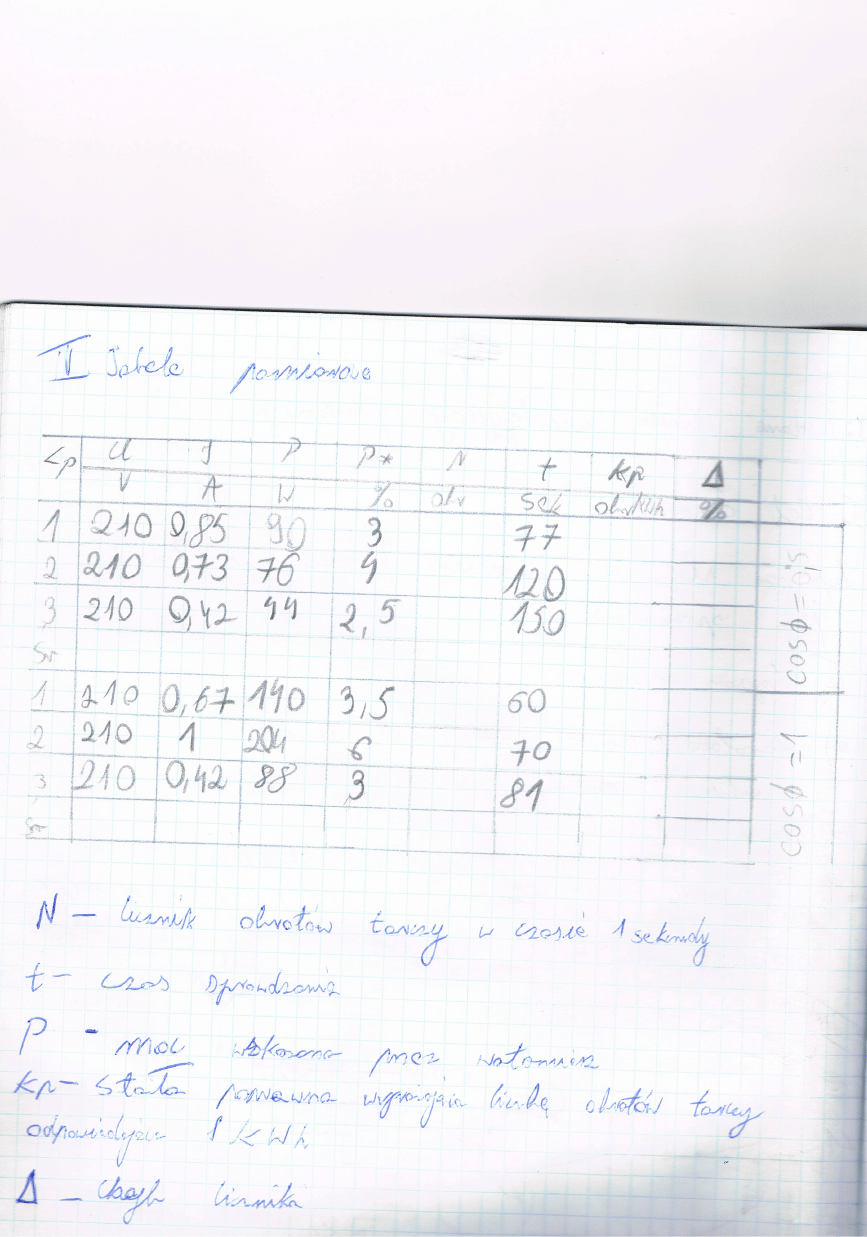 V Tabele pomiarowe
Lp U I P P* N t Kp Δ
V A W % obr sek obr/kWh %
1 210 0,85 90 3 77
2 210 0,73 76 4 120
3 210 0,42 44 2,5 150
Śr
cosϕ=0,5
1 210 0,67 140 3,5 60
2 210 1 204 6 70
3 210 0,42 88 3 81
Śr
cosϕ=1
N – licznik obrotów tarczy w czasie 1 sekundy
t – czas sprawdzania
P - moc wskazana przez watomierz
Kp – Stała poprawna wyrażająca liczbę obrotów tarczy
odpowiadająca 1 kWh
Δ – błąd licznika